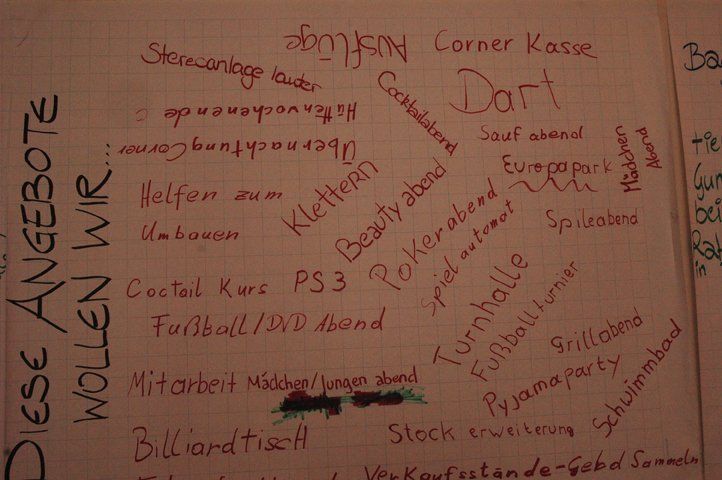 DIESE ANGEBOTE
WOLLEN WIR...
Ausflüge
Corner Kasse
Stereoanlage lauter
Cocktailabend
Dart
Hüttenwochenende
Übernachtung Corner
Sauf abend
Europapark
Mädchen
Abend
Helfen zum
Umbauen
Klettern
Beauty abend
Pokerabend
Spiel automat
Spileabend
Coctail Kurs
PS3
Fußball/DVD Abend
Turnhalle
Fußballturnier
Grillabend
Mitarbeit
Mädchen/Jungen abend
Pyjamaparty
Schwimmbad
Billiardtisch
Stock erweiterung
Verkaufsstände-Gebd Sammeln
Ba
in